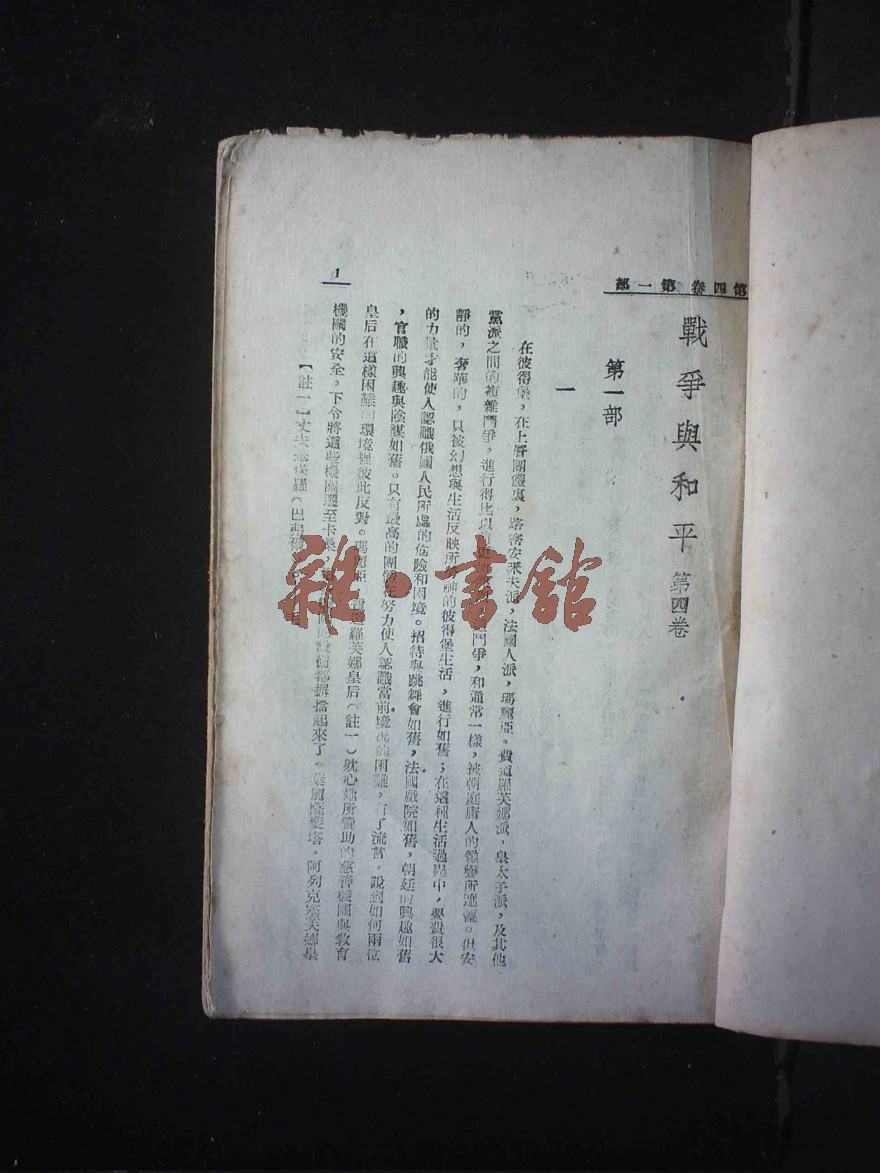 第四卷 第一部
戰爭與和平 第四卷
第一部
一
在彼得堡，在上層團體裏，路密安采夫派，法國人派，瑪麗亞·費道羅芙娜派，皇太子派，及其他
黨派之間的複雜鬥爭，進行得比以鬥爭，和通常一樣，被朝庭庸人的聲所遮蓋。但安
靜的，奢華的，只被幻想與生活反映所的彼得堡生活，進行如舊；在這種生活過程中，要費很大
的力量才能使人認識俄國人民所處的危險和困境。招待與跳舞會如舊，法國戲院如舊，朝廷的興趣如舊
，官職的興趣與陰謀如舊。只有最高的團體在努力使人認識當前境況的困難。有了流言，說到如何兩位
皇后在這樣困難的環境裡彼此反對。瑪麗亞·費道羅芙娜皇后（註一）躭心她所贊助的慈善機關與敎育
機關的安全，下令將這些機關遷至卡桑，都摒擋起來了。葉麗薩妻塔·阿列克塞芙娜皇
【註一】丈夫是保羅（巴弗爾）
1
雜·書館